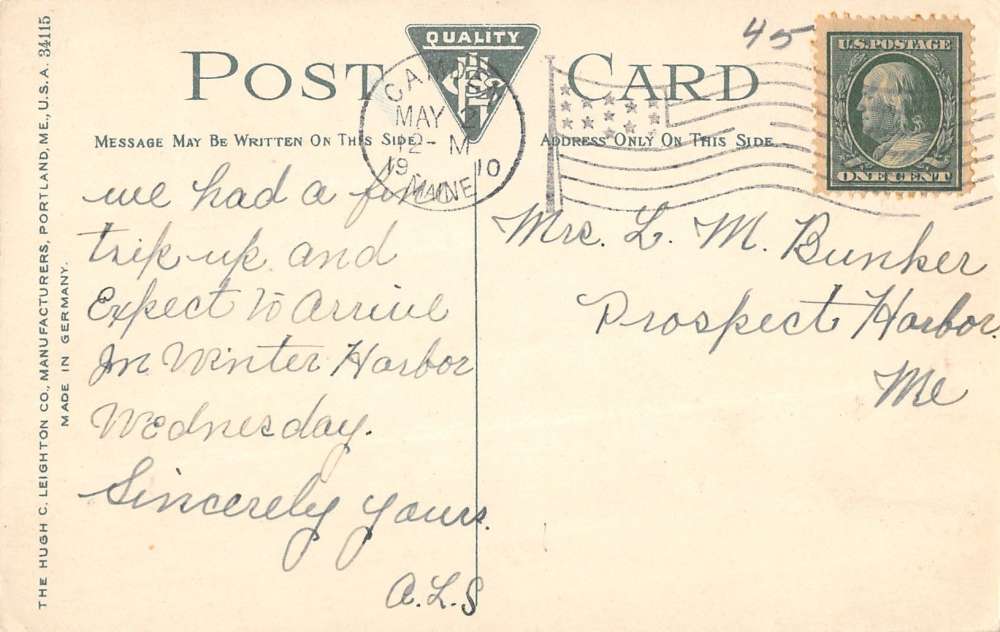 THE HUGH C. LEIGHTON CO., MANUFACTURERS, PORTLAND, ME., U.S.A. 34115
MADE IN GERMANY.
QUALITY
POST CARD
MESSAGE MAY BE WRITTEN ON THIS SIDE.
ADDRESS ONLY ON THIS SIDE.
45
U.S. POSTAGE
ONE CENT
CAMDEN
MAY 2
12- M
19 10
MAINE
we had a fine
trip up and
Expect to Arrive
In Winter Harbor
Wednesday.
Sincerely yours.
A.L.S
Mrs. L. M. Bunker
Prospect Harbor.
Me